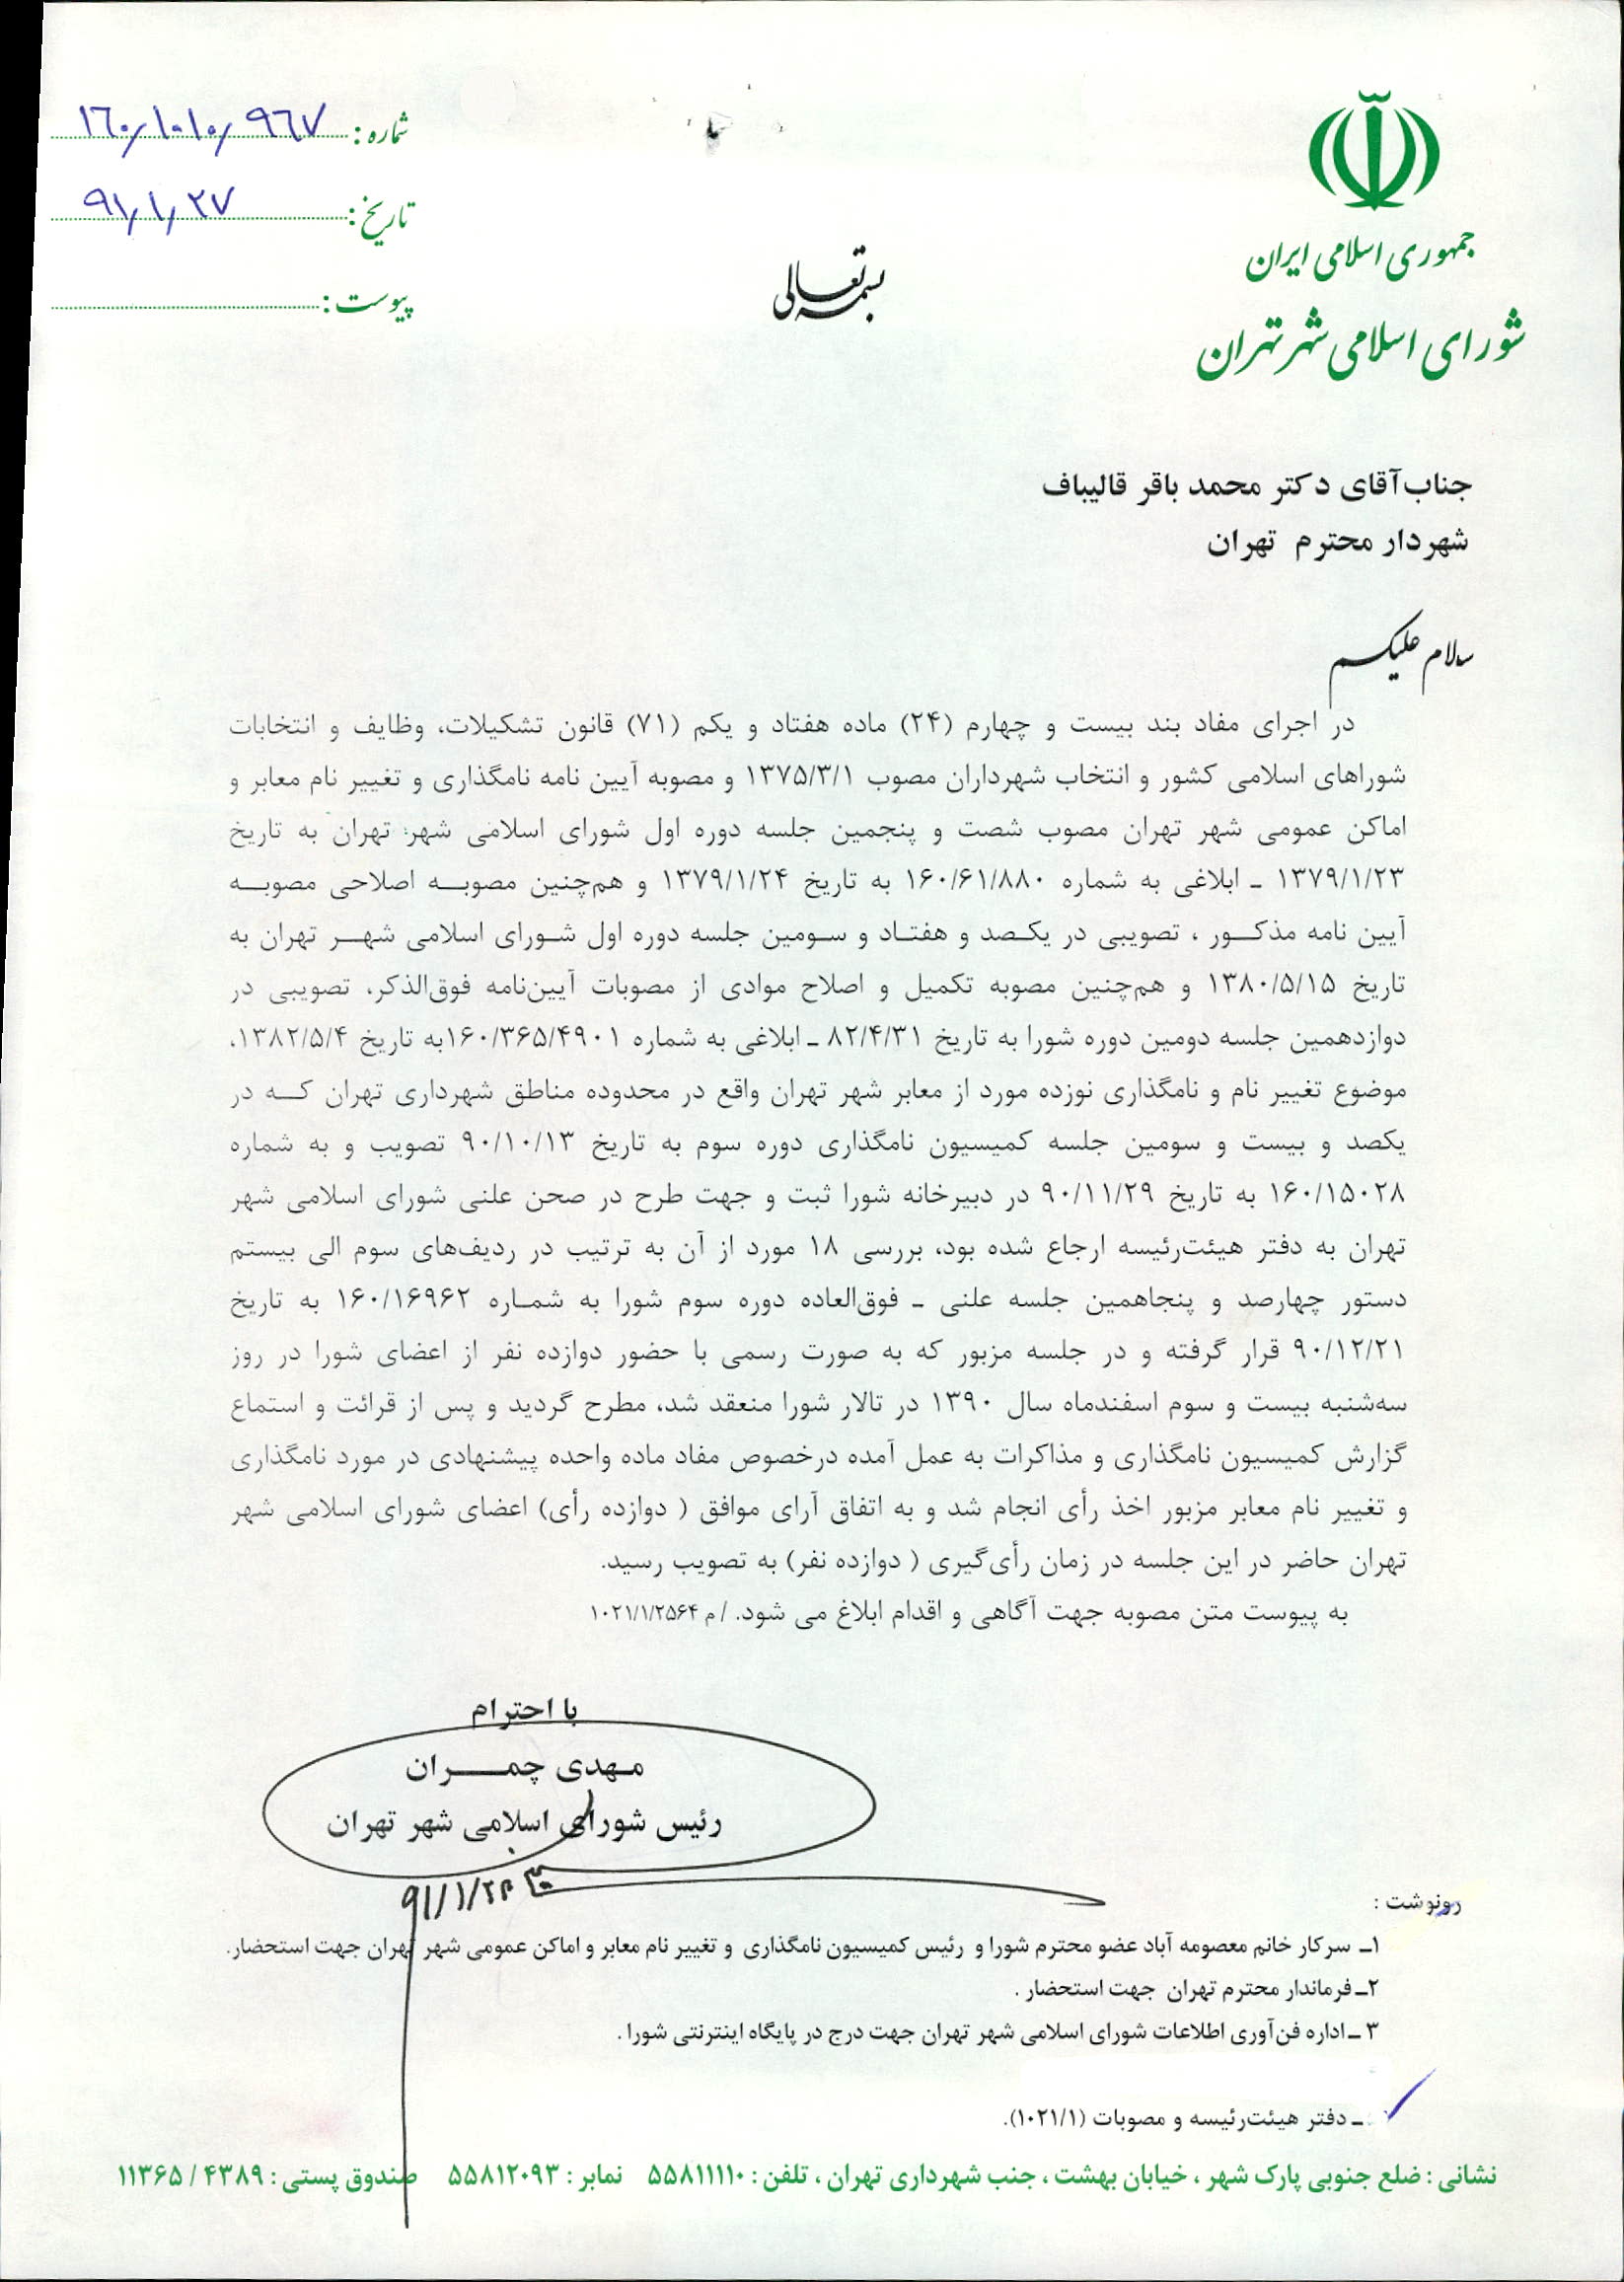 جمهوری اسلامی ایران
شورای اسلامی شهر تهران
شماره: ۱۶۰/۱۰۱۰/۹۶۷
تاریخ: ۹۱/۱/۲۷
پیوست:
بسمه تعالی
جناب‌آقای دکتر محمد باقر قالیباف
شهردار محترم تهران
سلام علیکم
در اجرای مفاد بند بیست و چهارم (۲۴) ماده هفتاد و یکم (۷۱) قانون تشکیلات، وظایف و انتخابات
شوراهای اسلامی کشور و انتخاب شهرداران مصوب ۱۳۷۵/۳/۱ و مصوبه آیین نامه نامگذاری و تغییر نام معابر و
اماکن عمومی شهر تهران مصوب شصت و پنجمین جلسه دوره اول شورای اسلامی شهر تهران به تاریخ
۱۳۷۹/۱/۲۳ ـ ابلاغی به شماره ۱۶۰/۶۱/۸۸۰ به تاریخ ۱۳۷۹/۱/۲۴ و هم‌چنین مصوبه اصلاحی مصوبه
آیین نامه مذکور ، تصویبی در یکصد و هفتاد و سومین جلسه دوره اول شورای اسلامی شهر تهران به
تاریخ ۱۳۸۰/۵/۱۵ و هم‌چنین مصوبه تکمیل و اصلاح موادی از مصوبات آیین‌نامه فوق‌الذکر، تصویبی در
دوازدهمین جلسه دومین دوره شورا به تاریخ ۸۲/۴/۳۱ ـ ابلاغی به شماره ۱۶۰/۳۶۵/۴۹۰۱به تاریخ ۱۳۸۲/۵/۴،
موضوع تغییر نام و نامگذاری نوزده مورد از معابر شهر تهران واقع در محدوده مناطق شهرداری تهران که در
یکصد و بیست و سومین جلسه کمیسیون نامگذاری دوره سوم به تاریخ ۹۰/۱۰/۱۳ تصویب و به شماره
۱۶۰/۱۵۰۲۸ به تاریخ ۹۰/۱۱/۲۹ در دبیرخانه شورا ثبت و جهت طرح در صحن علنی شورای اسلامی شهر
تهران به دفتر هیئت‌رئیسه ارجاع شده بود، بررسی ۱۸ مورد از آن به ترتیب در ردیف‌های سوم الی بیستم
دستور چهارصد و پنجاهمین جلسه علنی ـ فوق‌العاده دوره سوم شورا به شماره ۱۶۰/۱۶۹۶۲ به تاریخ
۹۰/۱۲/۲۱ قرار گرفته و در جلسه مزبور که به صورت رسمی با حضور دوازده نفر از اعضای شورا در روز
سه‌شنبه بیست و سوم اسفندماه سال ۱۳۹۰ در تالار شورا منعقد شد، مطرح گردید و پس از قرائت و استماع
گزارش کمیسیون نامگذاری و مذاکرات به عمل آمده درخصوص مفاد ماده واحده پیشنهادی در مورد نامگذاری
و تغییر نام معابر مزبور اخذ رأی انجام شد و به اتفاق آرای موافق ( دوازده رأی) اعضای شورای اسلامی شهر
تهران حاضر در این جلسه در زمان رأی‌گیری ( دوازده نفر) به تصویب رسید.
به پیوست متن مصوبه جهت آگاهی و اقدام ابلاغ می شود. / م ۱۰۲۱/۱/۲۵۶۴
با احترام
مهدی چمران
رئیس شورای اسلامی شهر تهران
رونوشت :
۱ـ سرکار خانم معصومه آباد عضو محترم شورا و رئیس کمیسیون نامگذاری و تغییر نام معابر و اماکن عمومی شهر تهران جهت استحضار.
۲ـ فرماندار محترم تهران جهت استحضار .
۳ ـ اداره فن‌آوری اطلاعات شورای اسلامی شهر تهران جهت درج در پایگاه اینترنتی شورا .
ـ دفتر هیئت‌رئیسه و مصوبات (۱۰۲۱/۱).
نشانی : ضلع جنوبی پارک شهر ، خیابان بهشت ، جنب شهرداری تهران ، تلفن : ۵۵۸۱۱۱۱۰ نمابر : ۵۵۸۱۲۰۹۳ صندوق پستی : ۴۳۸۹ / ۱۱۳۶۵